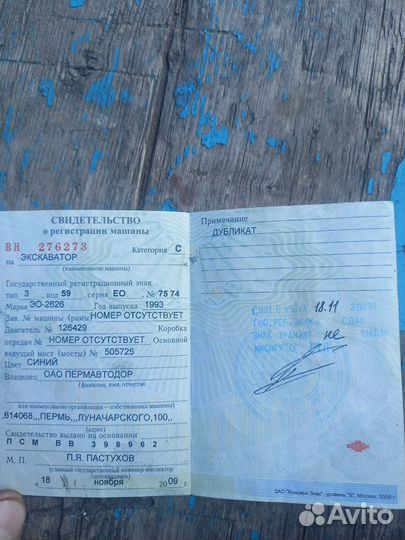 СВИДЕТЕЛЬСТВО
о регистрации машины
ВН 276273 Категория С
на ЭКСКАВАТОР
(наименование машины)
Государственный регистрационный знак
тип 3, код 59, серия ЕО, № 7574
Марка ЭО-2626 Год выпуска 1993
Зав. № машины (рамы) НОМЕР ОТСУТСТВУЕТ
Двигатель № 126429 Коробка
передач № НОМЕР ОТСУТСТВУЕТ Основной
ведущий мост (мосты) № 505725
Цвет СИНИЙ
Владелец ОАО ПЕРМАВТОДОР
(фамилия, имя, отчество
или наименование организации – собственника машины)
,614068,,,ПЕРМЬ,,,ЛУНАЧАРСКОГО,100,,
(адрес)
Свидетельство выдано на основании
ПСМ ВВ 398962
М. П. П.Я. ПАСТУХОВ
(главный государственный инженер-инспектор
гостехнадзора)
18 ноября 2009 г.
Примечание
ДУБЛИКАТ
СНЯТ С УЧЕТА 18.11 2009г
ГОС.РЕГ.ЗНАК СДАН
ЗНАК ТРАНЗИТ не ВЫДАН
ИНСПЕКТОР
ЗАО "Концерн Знак", уровень "Б", Москва, 2009 г.
Avito